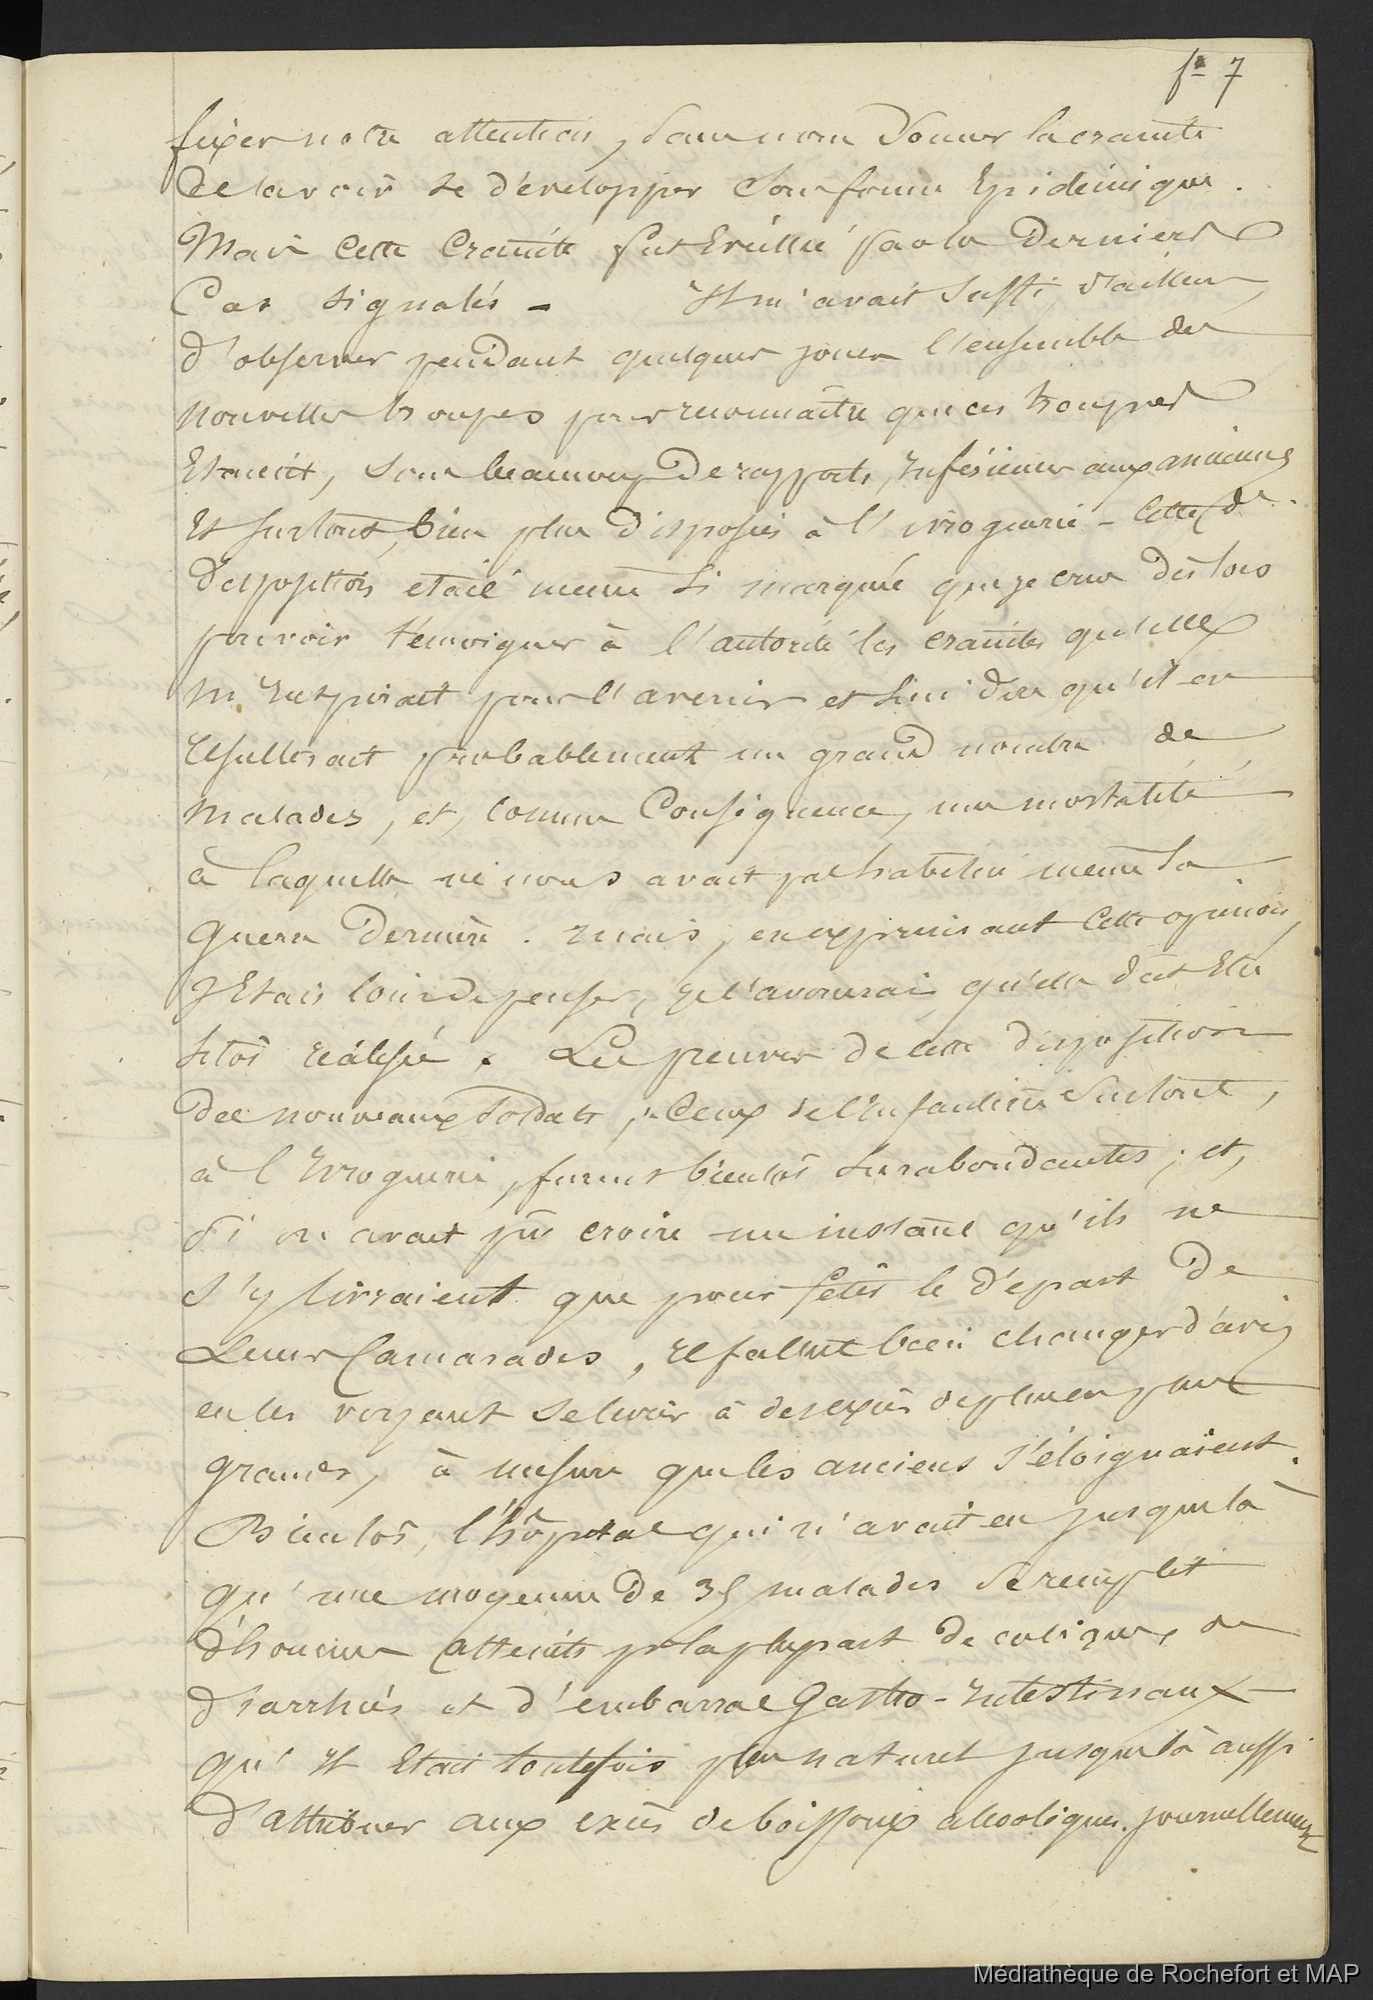 fo 7
fixer notre attention, sans nous donner la crainte
de la voir se d'évelopper sous forme Epidémique.
Mais cette crainte fut Eveillée par les derniers
Cas signalés - Il m'avait suffi d'ailleurs,
d'observer pendant quelques jours l'ensemble des
nouvelles troupes pour reconnaître que ces troupes
Etaient, sous beaucoup De rapports, Inférieures aux anciennes
Et surtout, bien plus disposées à l'ivrognerie - Cette
disposition etait même si marquée que je crus dès lors
pouvoir témoigner à l'autorité les craintes qu'elle
m'Inspirait pour l'avenir et lui dire qu'il en
résulterait probablement un grand nombre de
malades, et, comme Conséquence, une mortalité
à laquelle ne nous avait pas habitué même la
guerre Dernière. mais, en exprimant cette opinion,
J'Etais loin de penser, Je l'avouerai, qu'elle dût Etre
sitôt réalisée. Les preuves de cette disposition
des nouveaux soldats, Ceux de l'Infanterie surtout,
à l'Ivrognerie, furent bientôt surabondantes; et,
si on avait pû croire un instant qu'ils ne
s'y livraient que pour fêter le d'épart De
Leurs Camarades, Il fallut bien changer d'avis
en les voyant se livrer à des excès de plus en plus
graves, à mesure que les anciens s'éloignaient.
Bientôt, l'hôpital qui n'avait eu jusque là
qu'une moyenne De 35 malades se remplit
d'hommes atteints pr la plupart de coliques, de
diarrhées et d'embarras Gastro-Intestinaux
qu'Il Etait toutefois plus naturel jusque là aussi
d'attribuer aux excès de boissons alcooliques. journellement
Médiathèque de Rochefort et MAP